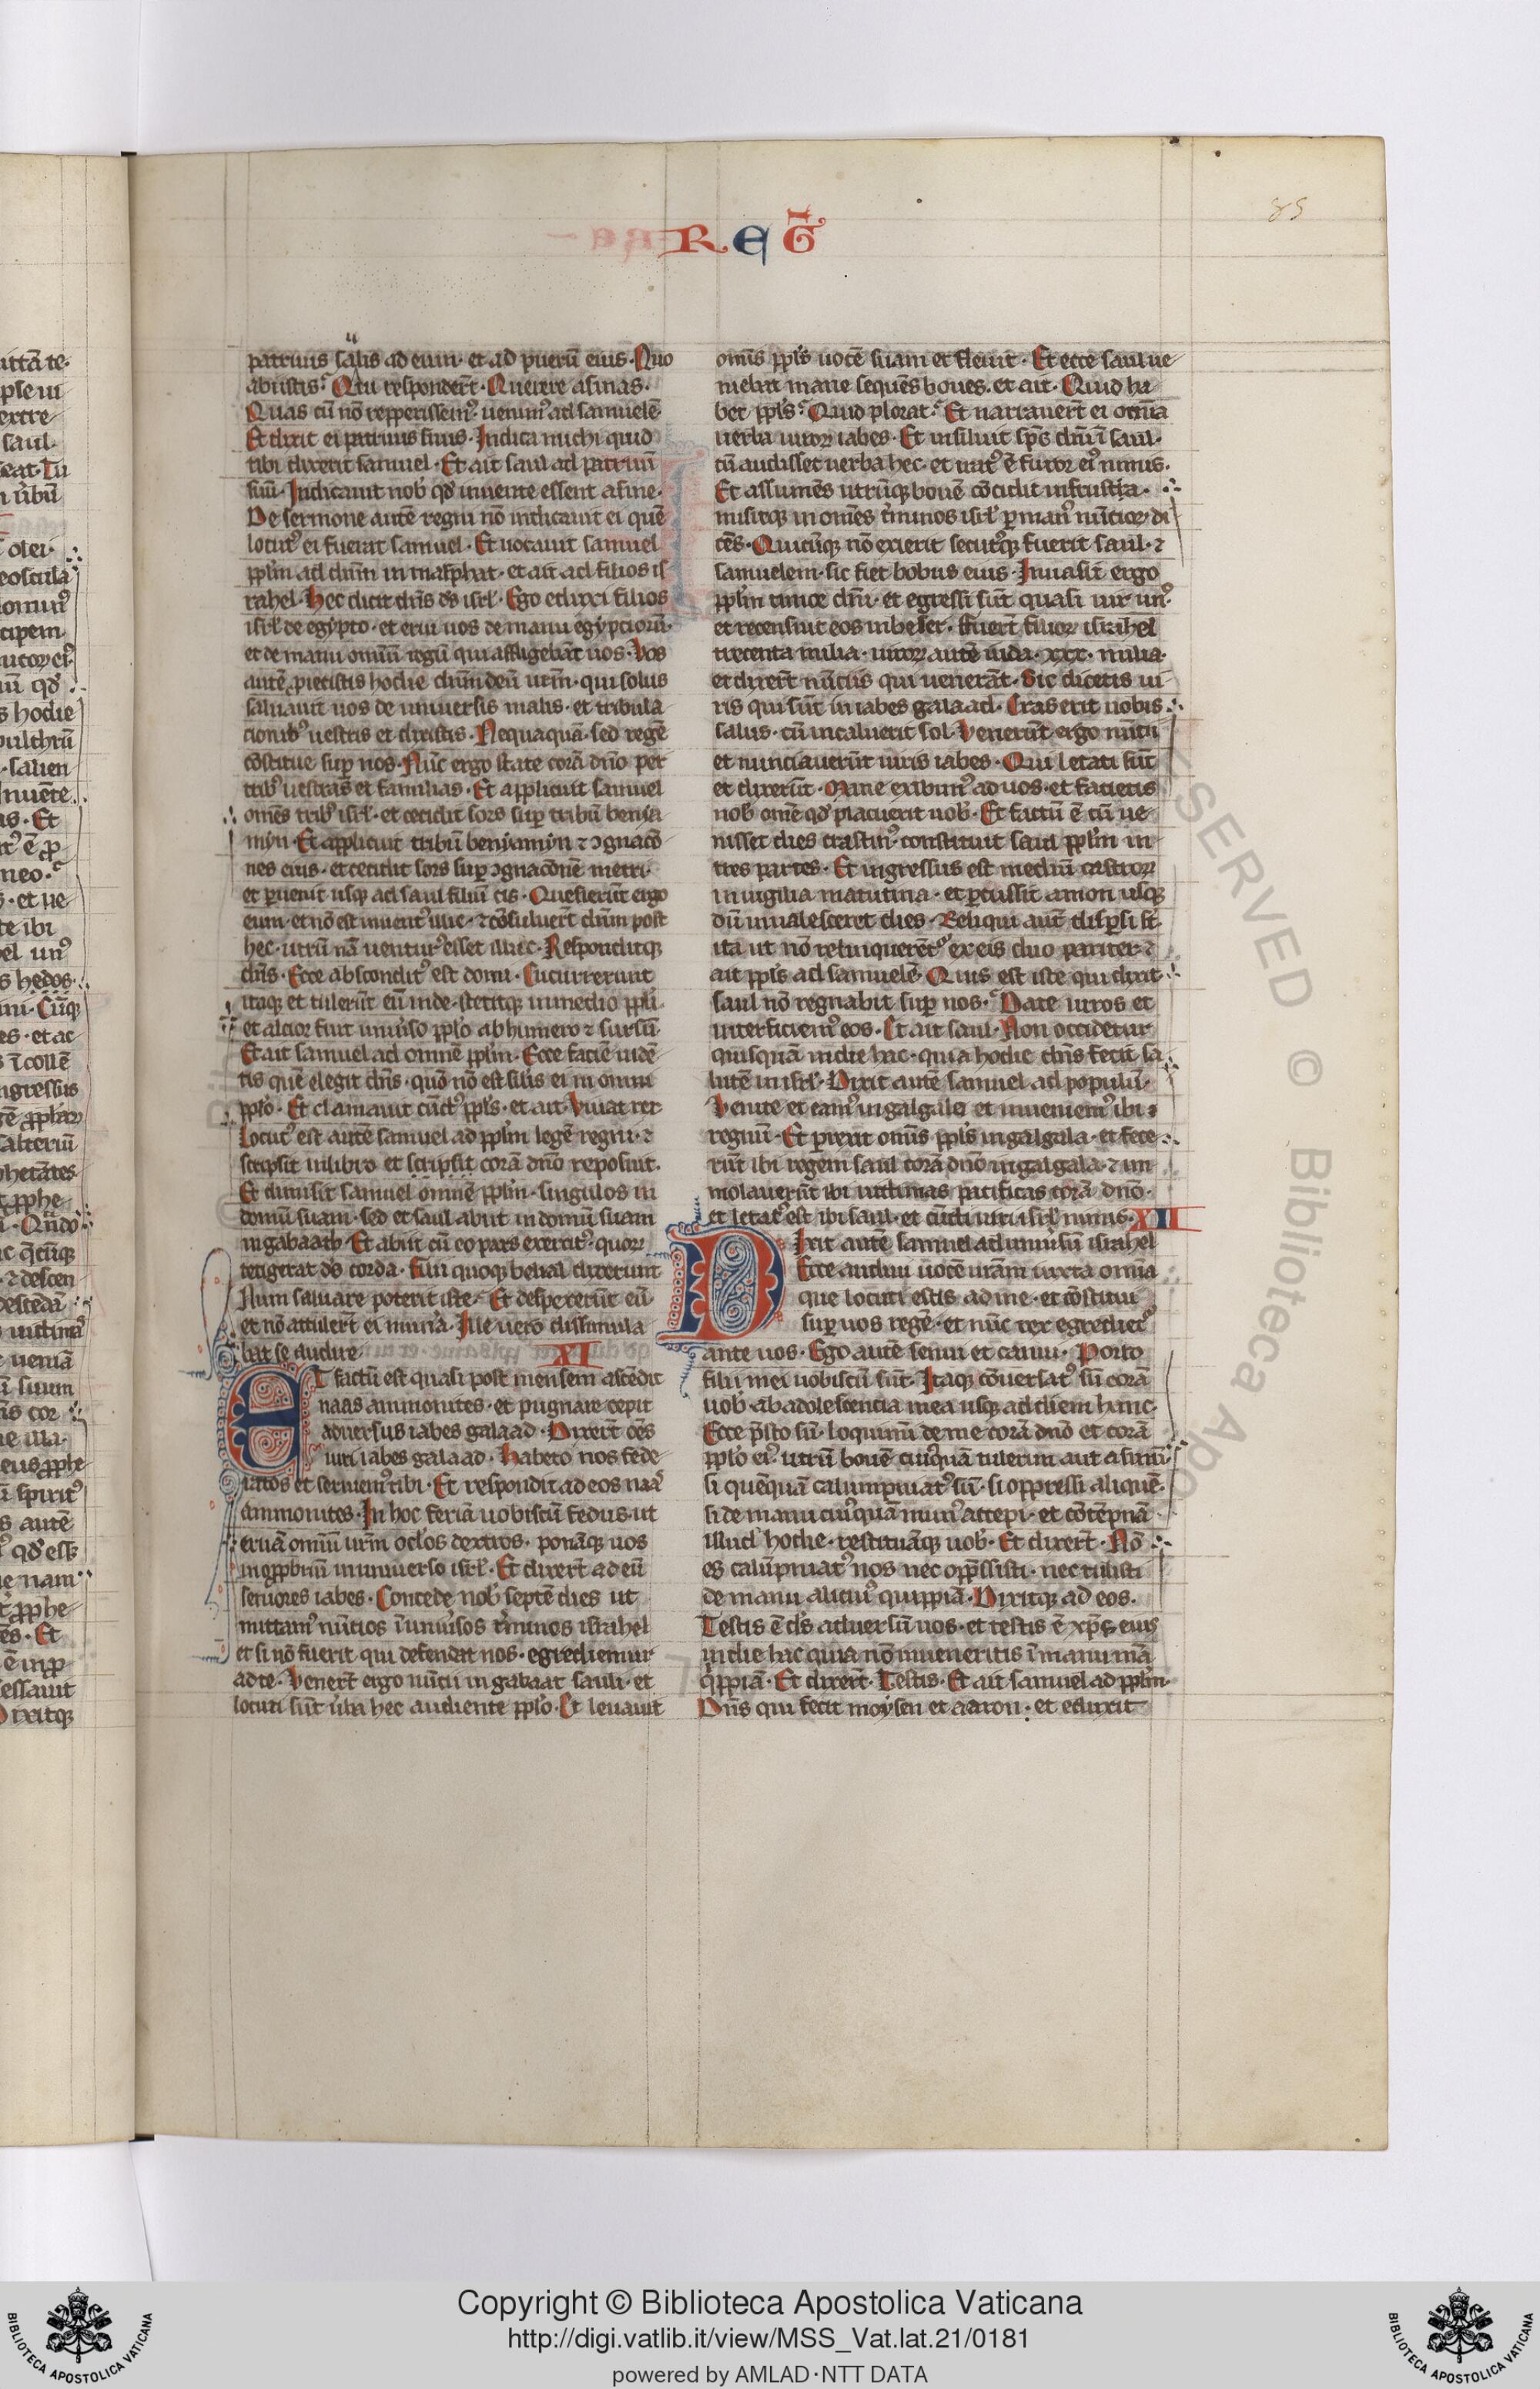 REG I
85
patruus saulis ad eum · et ad pueru͞ eius · Quo
abiistis · Qui responder͞t · Querere asinas ·
Quas cu͞ no͞ repperissemꝰ · uenimꝰ ad samuele͞
Et dixit ei patruus suus · Indica michi quid
tibi dixerit samuel · Et ait saul ad patruu͞
suu͞ · Indicauit nob̕ qd̕ inuente essent asine ·
De sermone aute͞ regni no͞ indicauit ei que͞
locutꝰ ei fuerat samuel · Et uocauit samuel
ppl̕m ad dn͞m in masphat · et ait ad filios is
rahel · Hec dicit dn͞s ds̕ isrl̕ · Ego eduxi filios
isrl̕ de egypto · et erui uos de manu egyptioru͞ ·
et de manu omniu͞ regu͞ qui affligeba͞t uos · Vos
aute͞ proiecistis hodie dn͞m deu͞ ur͞m · qui solus
saluauit uos de uniuersis malis · et tribula
cionibꝰ uestris et dixistis · Nequaqua͞ · sed rege͞
co͞stitue sup̱ nos · Nu͞c ergo state cora͞ dn͞o per
tribꝰ uestras et familias · Et applicuit samuel
om͞es tribꝰ isrl̕ · et cecidit sors sup̱ tribu͞ benia
myn · Et applicuit tribu͞ beniamyn ⁊ ꝯgnacio͞
nes eius · et cecidit sors sup̱ ꝯgnacione͞ metri ·
et p̱uenit usqꝫ ad saul filiu͞ cis · Quesieru͞t ergo
eum · et no͞ est inuentꝰ illic · ⁊ co͞suluer͞t dn͞m post
hec · utru͞ na͞ uenturꝰ esset illuc · Responditqꝫ
dn͞s · Ecce absconditꝰ est domi · Cucurrerunt
itaqꝫ et tuleru͞t eu͞ inde · stetitqꝫ in medio ppl̕i
et altior fuit uniu̕so ppl̕o ab humero ⁊ sursu͞ ·
Et ait samuel ad omne͞ ppl̕m · Ecce facie͞ uide͞
tis que͞ elegit dn͞s · quo͞ no͞ est silis ei in omni
ppl̕o · Et clamauit cu͞ctꝰ ppl̕s · et ait · Viuat rex
Locutꝰ est aute͞ samuel ad ppl̕m lege͞ regni · ⁊
scripsit in libro et scripsit cora͞ dn͞o reposuit ·
Et dimisit samuel omne͞ ppl̕m · singulos in
domu͞ suam · sed et saul abiit in domu͞ suam
in gabaath · Et abiit cu͞ eo pars exercitꝰ · quoꝝ
tetigerat ds̕ corda · filii quoqꝫ belial dixerunt
Num saluare poterit iste · Et despexeru͞t eu͞
et no͞ attuler͞t ei mun̕a · Ille uero dissimula
bat se audire XI
ET factu͞ est quasi post mensem asce͞dit
naas ammonites · et pugnare cepit
aduersus iabes galaad · Dixer͞t om͞s
uiri iabes galaad · Habeto nos fede
ratos et seruiemꝰ tibi · Et respondit ad eos naas
ammonites · In hoc feria͞ uobiscu͞ fedus · ut
erua͞ omniu͞ ur͞m ocl̕os dextros · pona͞qꝫ uos
in opprobriu͞ in uniuerso isrl̕ · Et dixer͞t ad eu͞
seniores iabes · Concede nob̕ septe͞ dies ut
mittamꝰ nu͞tios i͞ uniu̕sos t̕minos israhel
et si no͞ fuerit qui defendat nos · egrediemur
ad te · Vener͞t ergo nu͞tii in gabaat sauli · et
locuti su͞t u̕ba hec audiente ppl̕o · Et leuauit
omis ppl̕s uoce͞ suam et fleuit · Et ecce saul ue
niebat mane seque͞s boues · et ait · Quid ha
bet ppl̕s · Quid plorat · Et narrauer͞t ei omnia
uerba uiroꝝ iabes · Et insiliuit sp͞s dn͞i i͞ saul ·
cu͞ audisset uerba hec · et iratꝰ e͞ furor eiꝰ nimis ·
Et assume͞s utru͞qꝫ boue͞ co͞cidit in frustra ·
misitqꝫ in om͞es t̕minos isrl̕ p̱ manꝰ nu͞tioꝝ · di
ce͞s · Quicu͞qꝫ no͞ exierit secutꝰqꝫ fuerit saul · ⁊
samuelem · sic fiet bobus eius · Inuasit ergo
ppl̕m timor dn͞i · et egressi su͞t quasi uir unꝰ
et recensuit eos in beser · fuer͞t filioꝝ israhel
trecenta milia · uiroꝝ aute͞ iuda · xxx · milia ·
et dixer͞t nu͞ciis qui uenera͞t · Sic dicetis ui
ris qui su͞t in iabes galaad · Cras erit uobis
salus · cu͞ incaluerit sol · Veneru͞t ergo nu͞tii
et nunciaueru͞t uiris iabes · Qui letati su͞t
et dixeru͞t · Mane exibimꝰ ad uos · et facietis
nob̕ omne͞ qd̕ placuerit uob̕ · Et factu͞ e͞ cu͞ ue
nisset dies crastinꝰ · constituit saul ppl̕m in
tres partes · Et ingressus est mediu͞ castroꝝ
in uigilia matutina · et p̱cussit amon usqꝫ
du͞ inualesceret dies · Reliqui aut͞ disp̱si st͞
ita ut no͞ relinquere͞tꝰ ex eis duo pariter · ⁊
ait ppl̕s ad samuele͞ · Quis est iste qui dixit
saul no͞ regnabit sup̱ nos · Date uiros et
interficiemꝰ eos · Et ait saul · Non occidetur
quisqua͞ in die hac · quia hodie dn͞s fecit sa
lute͞ in isrl̕ · Dixit aute͞ samuel ad populu͞ ·
Venite et eamꝰ in galgala et innouemꝰ ibi
regnu͞ · Et p̱rexit omnis ppl̕s in galgala · et fece
ru͞t ibi regem saul cora͞ dn͞o in galgala · ⁊ im
molaueru͞t ibi uictimas pacificas cora͞ dn͞o ·
et letatꝰ est ibi saul · et cu͞cti uiri isrl̕ nimis · XII
DIxit aute͞ samuel ad uniu̕su͞ israhel
Ecce audiui uoce͞ ur͞am iuxta omnia
que locuti estis ad me · et co͞stitui
sup̱ uos rege͞ · et nu͞c rex egredietꝰ
ante uos · Ego aute͞ senui et canui · Porro
filii mei uobiscu͞ su͞t · Itaqꝫ co͞uersatꝰ su͞ cora͞
uob̕ ab adolescencia mea usqꝫ ad diem hanc ·
Ecce p̄sto su͞ · loquimi͞ de me cora͞ dn͞o et cora͞
xp̄o eiꝰ · utru͞ boue͞ cuiꝰqua͞ tulerim aut asinu͞ ·
si que͞qua͞ calumpniatꝰ su͞ · si oppressi alique͞ ·
si de manu cuiꝰqua͞ munꝰ accepi · et co͞te͞pna͞
illud̕ hodie · restitua͞qꝫ uob̕ · Et dixer͞t · No͞
es calu͞pniatꝰ nos nec opp̄ssisti · nec tulisti
de manu alicuiꝰ quippia͞ · Dixitqꝫ ad eos ·
Testis e͞ dn͞s aduersu͞ uos · et testis e͞ xp͞s eiuꝰ
in die hac quia no͞ inueneritis i͞ manu m͞a
qippia͞ · Et dixer͞t · Testis · Et ait samuel ad ppl̕m ·
Dn͞s qui fecit moysen et aaron · et eduxit
Copyright © Biblioteca Apostolica Vaticana
http://digi.vatlib.it/view/MSS_Vat.lat.21/0181
powered by AMLAD·NTT DATA